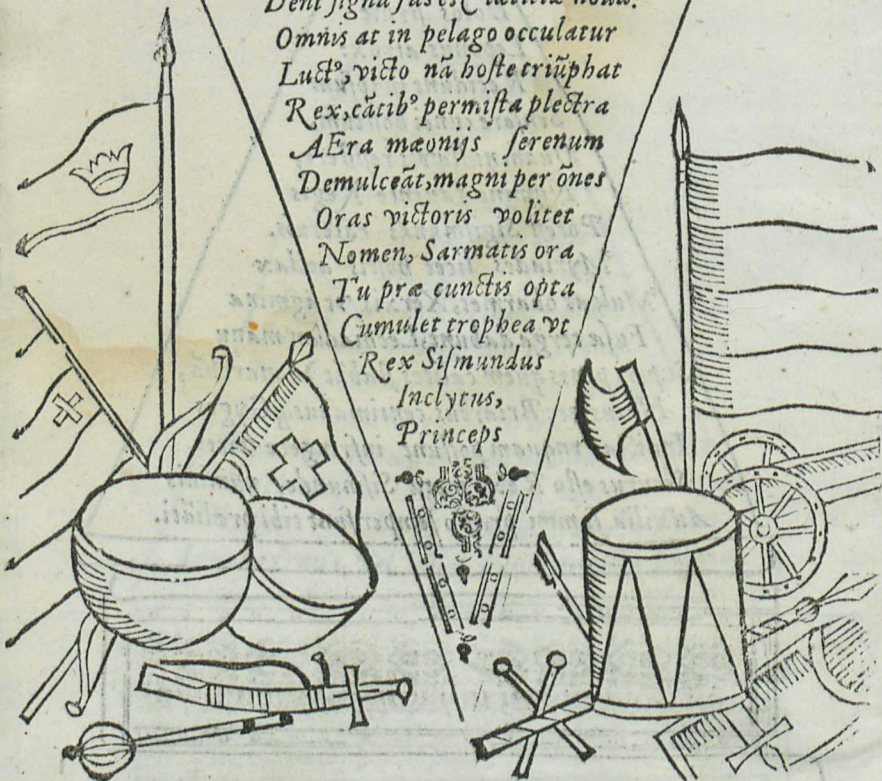 Omnis at in pelago occulatur
Luctꝰ, victo nã hoste triũphat
Rex, cãtibꝰ permista plectra
AEra mæonijs serenum
Demulceãt, magni per õnes
Oras victoris volitet
Nomen, Sarmatis ora
Tu præ cunctis opta
Cumulet trophea vt
Rex Sismundus
Inclytus,
Princeps